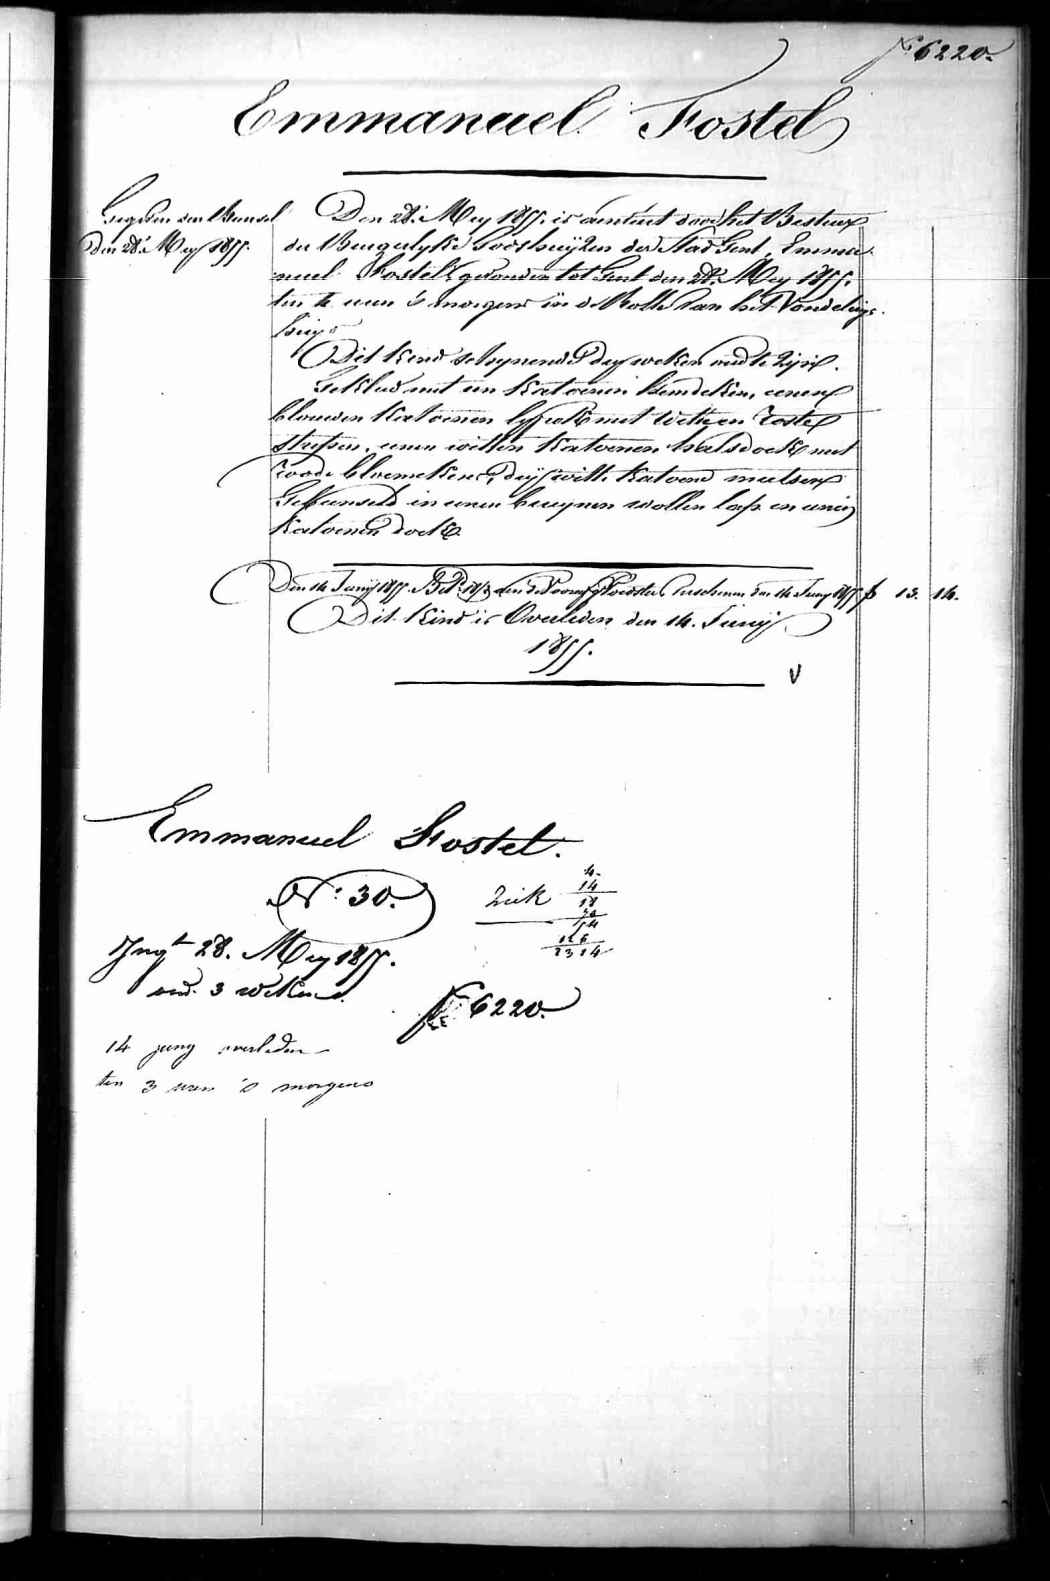 Nº 6220.
Emmanuel Fostel
Gegeven een Bundsel
Den 28.' Mey 1855.
Den 28.' Mey 1855. is aenveert door het Bestier
der Burgerlyke Godshuijzen der Stad Gent, Emma-
nuel Fostel, gevonden tot Gent den 28.' Mey 1855.
ten 4 uren 's morgens in de Rolle van het Vondelings-
huijs
Dit Kind schynende dry weken oud te zijn.
Gekleed met een Katoenen hemdeken, eenen
blauwen Katoenen met witte en
strepen, eenen witten Katoenen halsdoek met
roode bloemekens, dry witte Katoene mutsen
Gebunseld in eenen bruynen wollen lap en eenen
Katoenen doek.
Den 14 Junij 1855. Bet. aen de Voorst. Voedster Verschenen den 14 Juny 1855 f 13. 14.
Dit Kind is Overleden den 14. Junij
1855.
V
Emmanuel Fostel.
Nº 30.
Ziek
4.
14
18
54
126
2314
Ingt 28. Mey 1855.
oud. 3 weken
Nº 6220.
14 juny overleden
ten 3 uren 's morgens